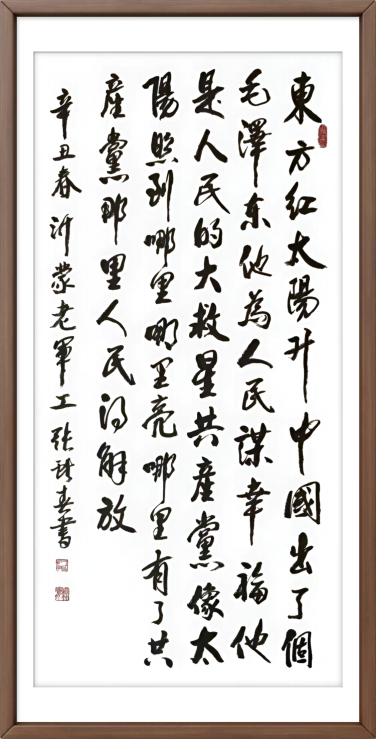 東方红太陽升中國出了個
毛澤东他為人民謀幸福他
是人民的大救星共産黨像太
陽照到哪里哪里亮哪里有了共
産黨那里人民得解放
辛丑春沂蒙老軍工张春書